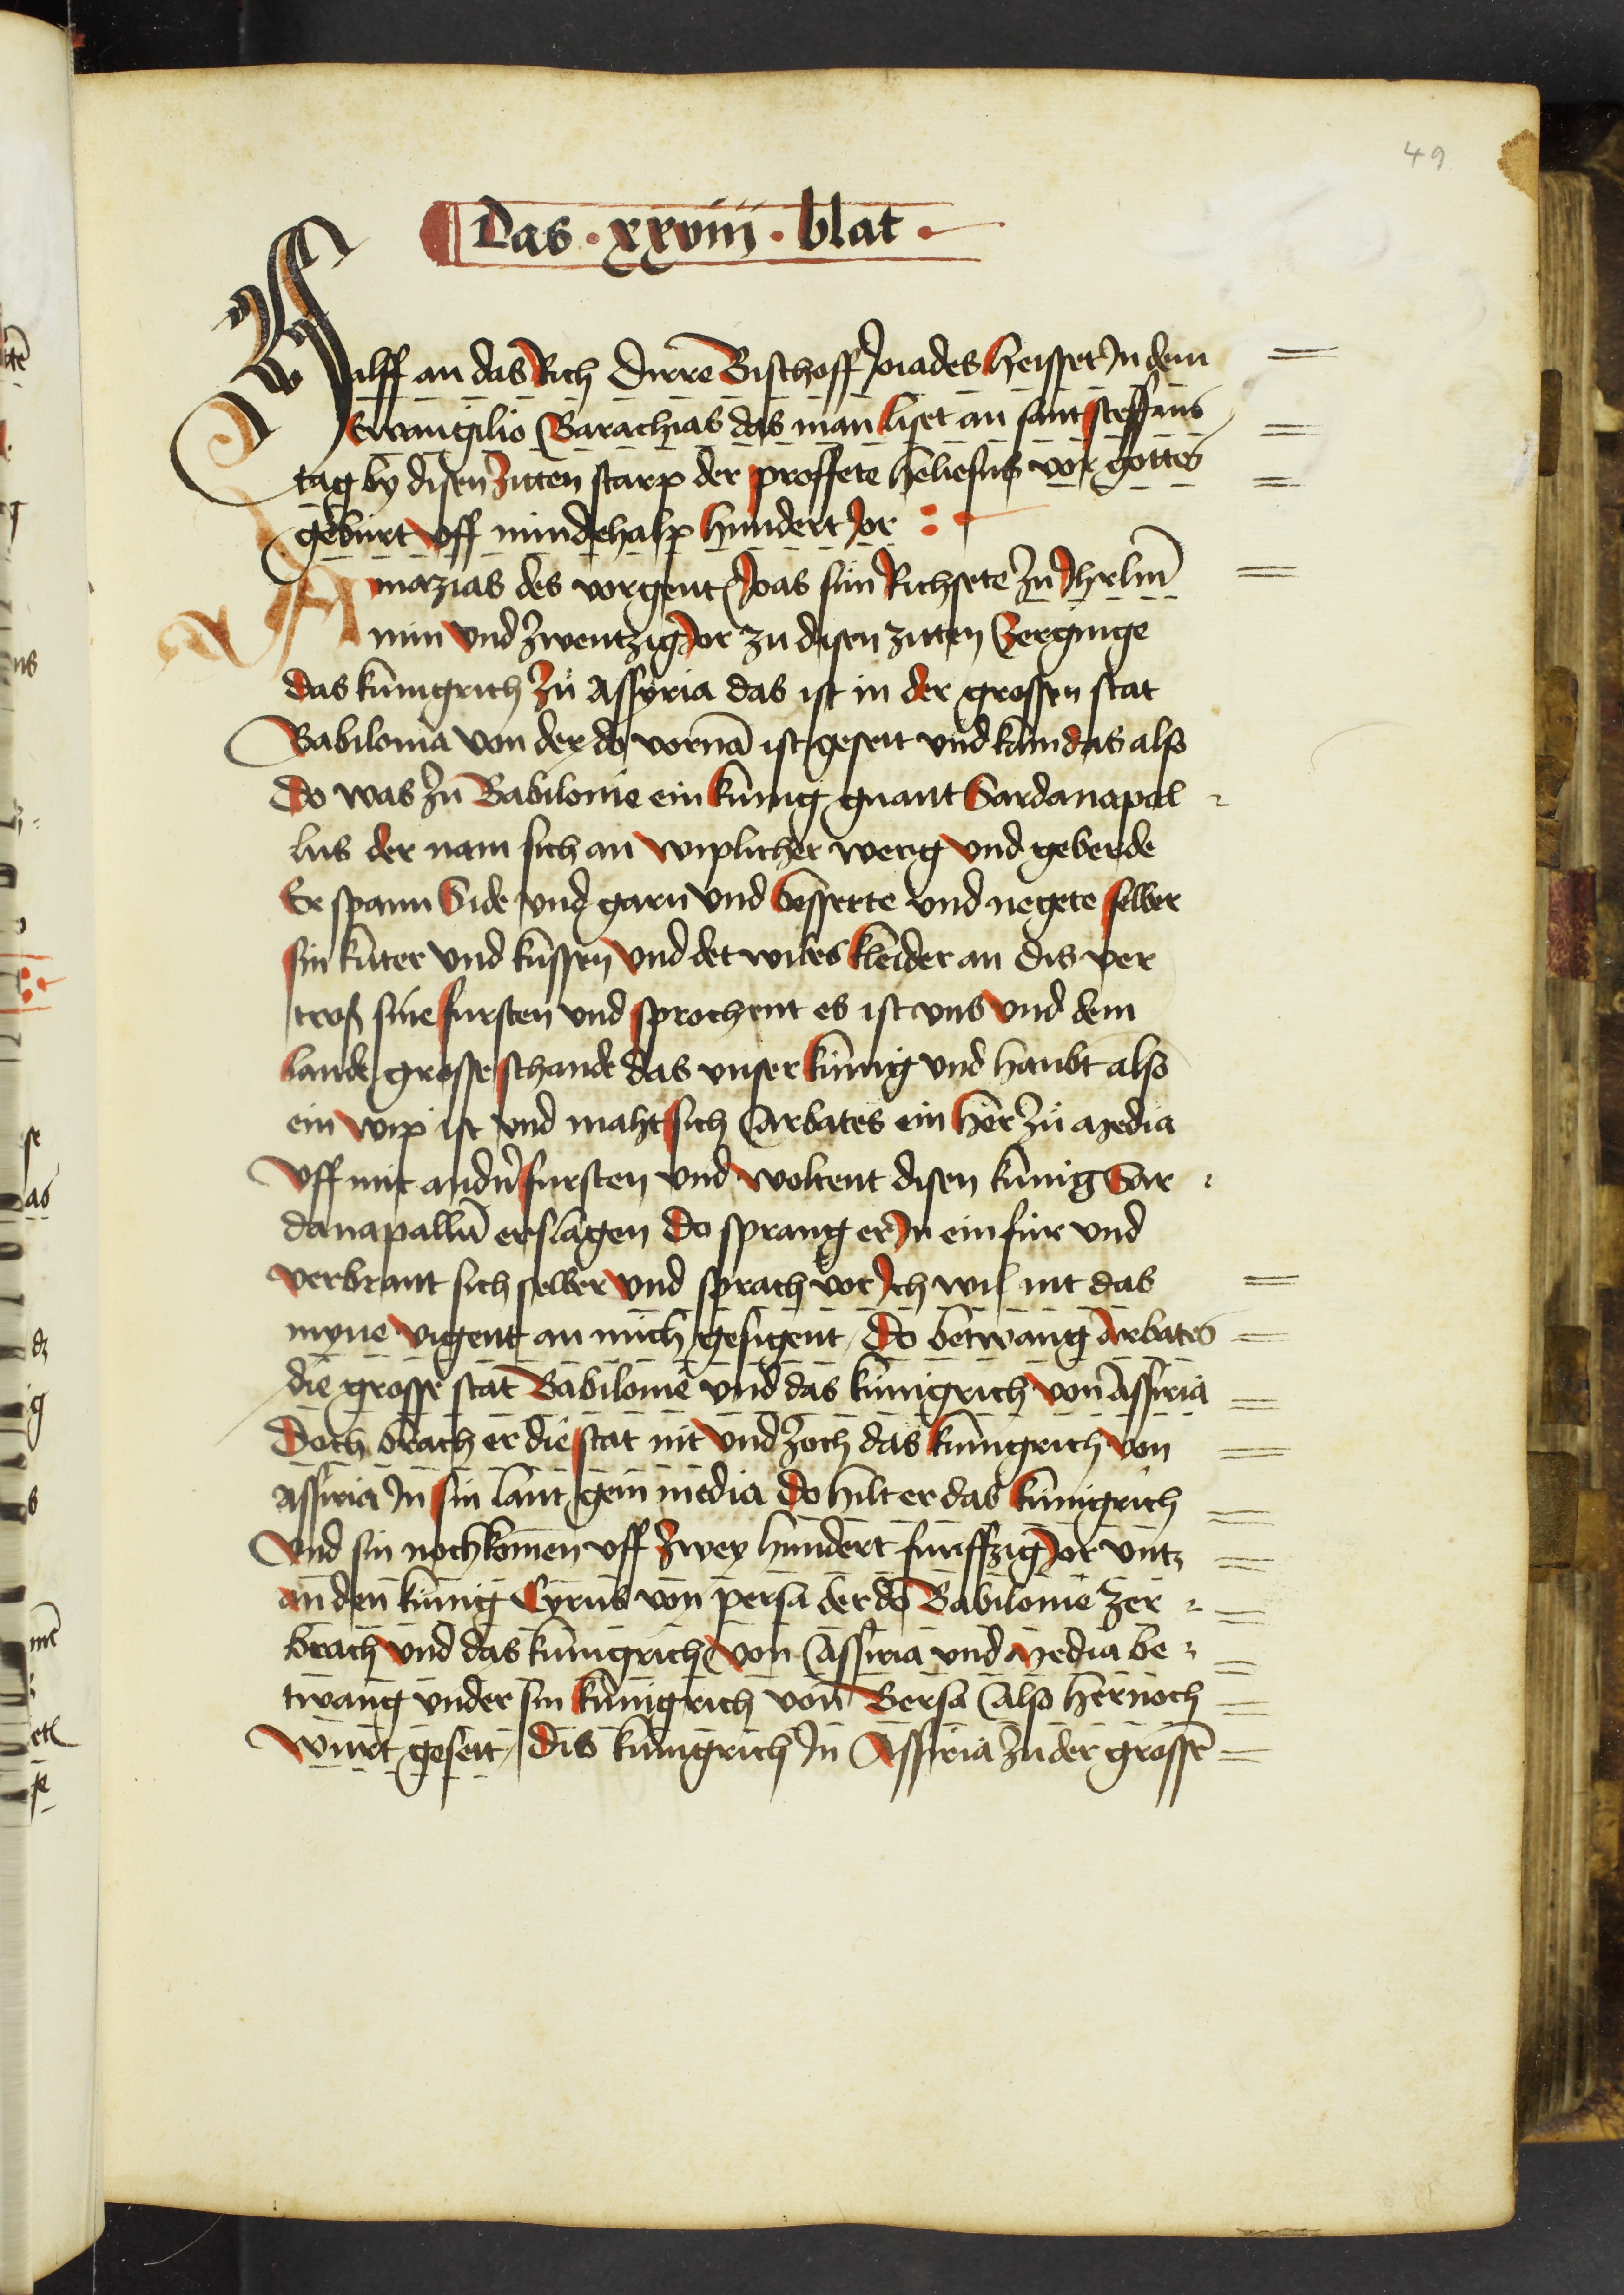 49
Das · xxviiii · blat ·
Halff an das Rich Dirre Bischoff Joiades heisset Jn dem
Ewangilio Barachias das man liset an sant steffans
tag by disen zitten starp der proffete heliesus vor gottes
geburt vff nündehalp hundert Jor
Amazias des vorgent Joas sün Richsete zů Jhrlm̄
nün vnd zwentzig Jor zu disen zitten verginge
das künigrich zů Assyria das ist in der grossen stat
Babilonia von der do vornā ist geseit vnd kam das also
Do was zů Babilonie ein künig gnant Sardanapal
lus der nam sich an wiplicher werg vnd geberde
Er spann Side vnd garn vnd besserte vnd negete selber
sin kuter vnd küssen vnd det wibes kleider an dis ver
tros sine fursten vnd sprochent es ist vns vnd dem
lande grosse schande das vnser künig vnd haubt also
ein wip ist vnd maht sich Arbates ein her zů Media
vff mit andn̄ fursten vnd woltent disen künig Sar
danapallū erslagen Do sprang er Jn ein für vnd
verbrant sich selber vnd sprach vor Jch wil nit das
myne vigent an mich gesigent / Do betwang Arbates
die grosse stat Babilonie vnd das künigrich von Assiria
Doch brach er die stat nit vnd zoch das künigrich von
Assiria Jn sin lant gein media Do hilt er das künigrich
Vnd sin nochkomen vff zwey hundert funffzig Jor vntz
an den künig Cyrus von persa der do Babilonie zer
brach vnd das künigrich von Assiria vnd Media be
twang vnder sin künigrich von Bersa Also hernoch
wurt geseit / Dis künigrich Jn Assiria zu der grossē